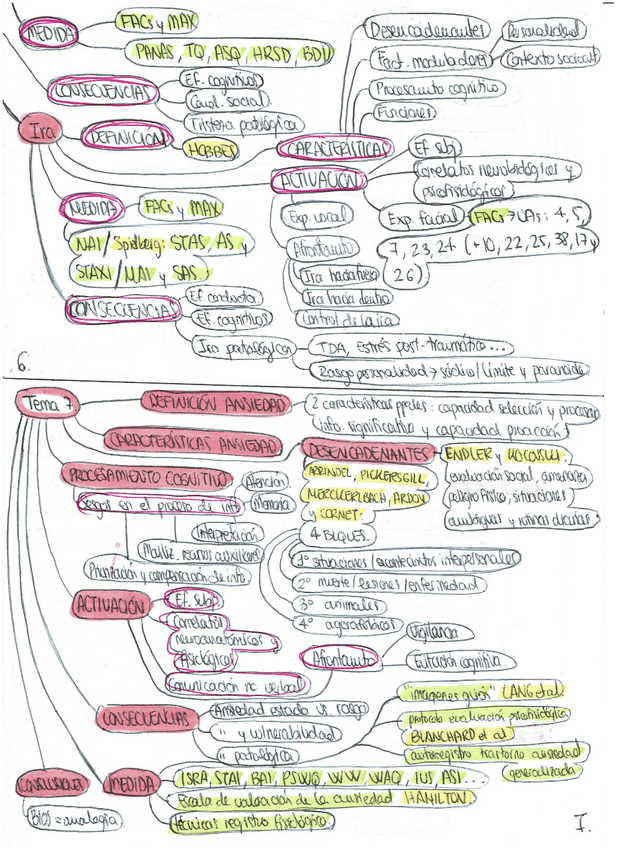 MEDIDA
FACs y MAX
PANAS, TQ, ASQ, HRSD, BDI
CONSECUENCIAS
Ef. cognitivos
Cond. social
Tristeza patológica
Desencadenantes
Fact. moduladores
Personalidad
Contexto sociocult
Procesamto cognitivo
Funciones
Ira
DEFINICIÓN
HOBBES
CARACTERÍSTICAS
ACTIVACIÓN
Ef subj
Correlatos neurobiológicos y
psicofisiológicos
Exp. vocal
Exp. Facial
FACs → UAs: 4, 5,
7, 23, 24 (+10, 22, 25, 38, 17 y
26)
Afrontamto
Ira hacia fuera
Ira hacia dentro
Control de la ira
MEDIDA
FACs y MAX
NAI / Spielberg: STAS, AS y
STAXI / NAI y SAS
CONSECUENCIAS
Ef. conducta
Ef. cognitivos
Ira patológica
TDA, Estrés post-traumático...
Rasgo personalidad → sádico/límite y paranoide
6.
Tema 7
DEFINICIÓN ANSIEDAD
2 características ppales: capacidad selección y procesar
info. significativa y capacidad proacción
CARACTERÍSTICAS ANSIEDAD
DESENCADENANTES
ENDLER y KOCOVSKI:
evaluación social, amenazas
peligro físico, situaciones
ambiguas y rutinas diarias
ARRINDEL, PICKERSGILL,
MERCKELBACH, ARDON
y CORNET:
4 BLQUES.
1º situaciones/acontecimtos interpersonales
2º muerte/lesiones/enfermedad
3º animales
4º agorafóbicos
PROCESAMIENTO COGNITIVO
Atención
Sesgos en el proceso de info
Memoria
Interpretación
Moviliz. recursos auxiliares
Priorización y compensación de info.
ACTIVACIÓN
Ef. subj.
Correlatos
neuroanatómicos y
fisiológicos
Comunicación no verbal
Afrontamto
Vigilancia
Evitación cognitiva
CONSECUENCIAS
Ansiedad estado vs. rasgo
" y vulnerabilidad
" patológica
CONCLUSIONES
BIOS = analogía.
MEDIDA
"imágenes guión" LANG et al
protocolo evaluación psicofisiológica
BLANCHARD et al
autoregistro trastorno ansiedad
generalizada
ISRA, STAI, BAI, PSWQ, WW, WAQ, IUS, ASI...
Escala de valoración de la ansiedad HAMILTON.
técnicas registro fisiológico.
7.